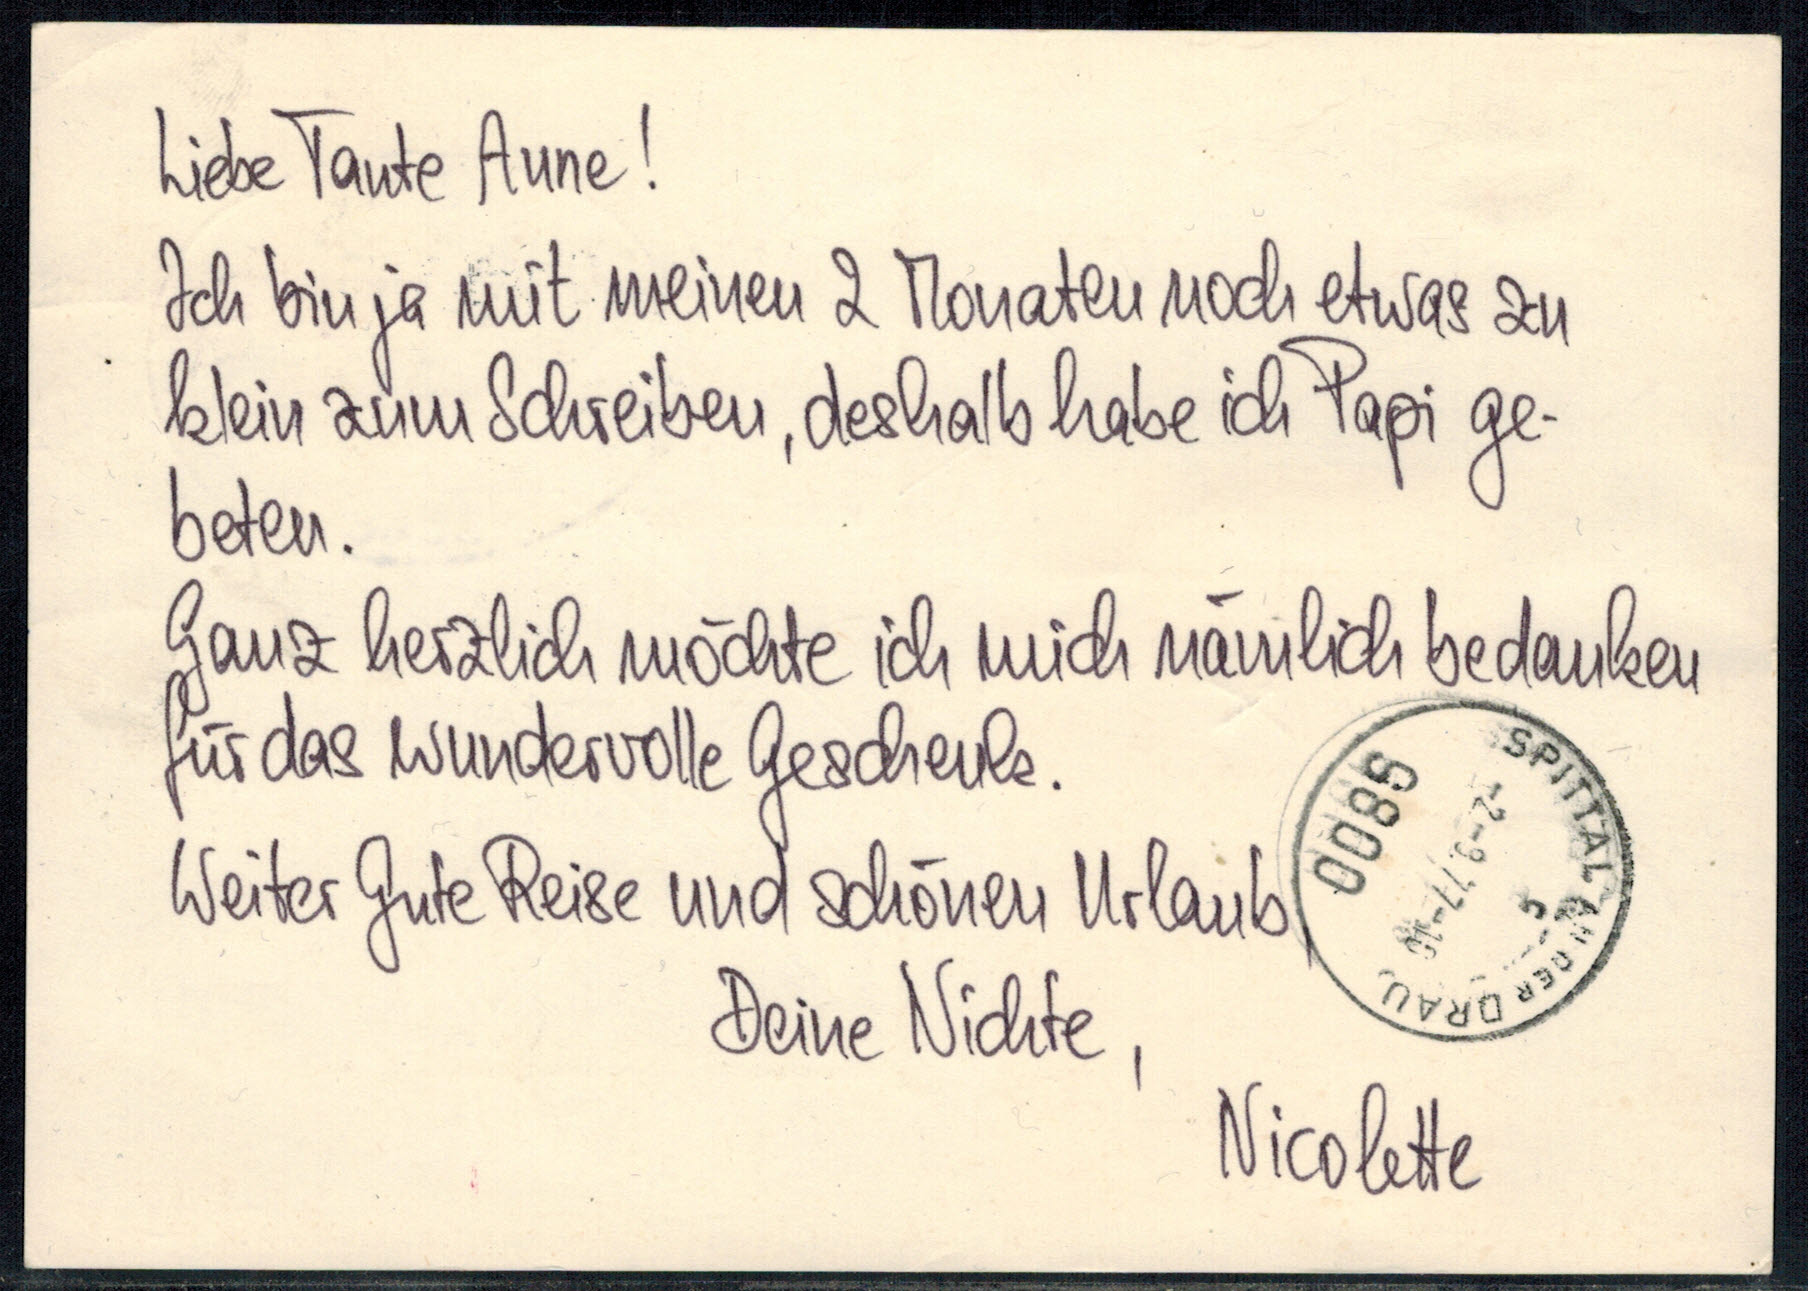 Liebe Tante Anne!
Ich bin ja mit meinen 2 Monaten noch etwas zu
klein zum Schreiben, deshalb habe ich Papi ge-
beten.
Ganz herzlich möchte ich mich nämlich bedanken
für das wundervolle Geschenk.
Weiter Gute Reise und schönen Urlaub,
Deine Nichte,
Nicolette
9800
SPITTAL AN DER DRAU
-2-9.77-
5